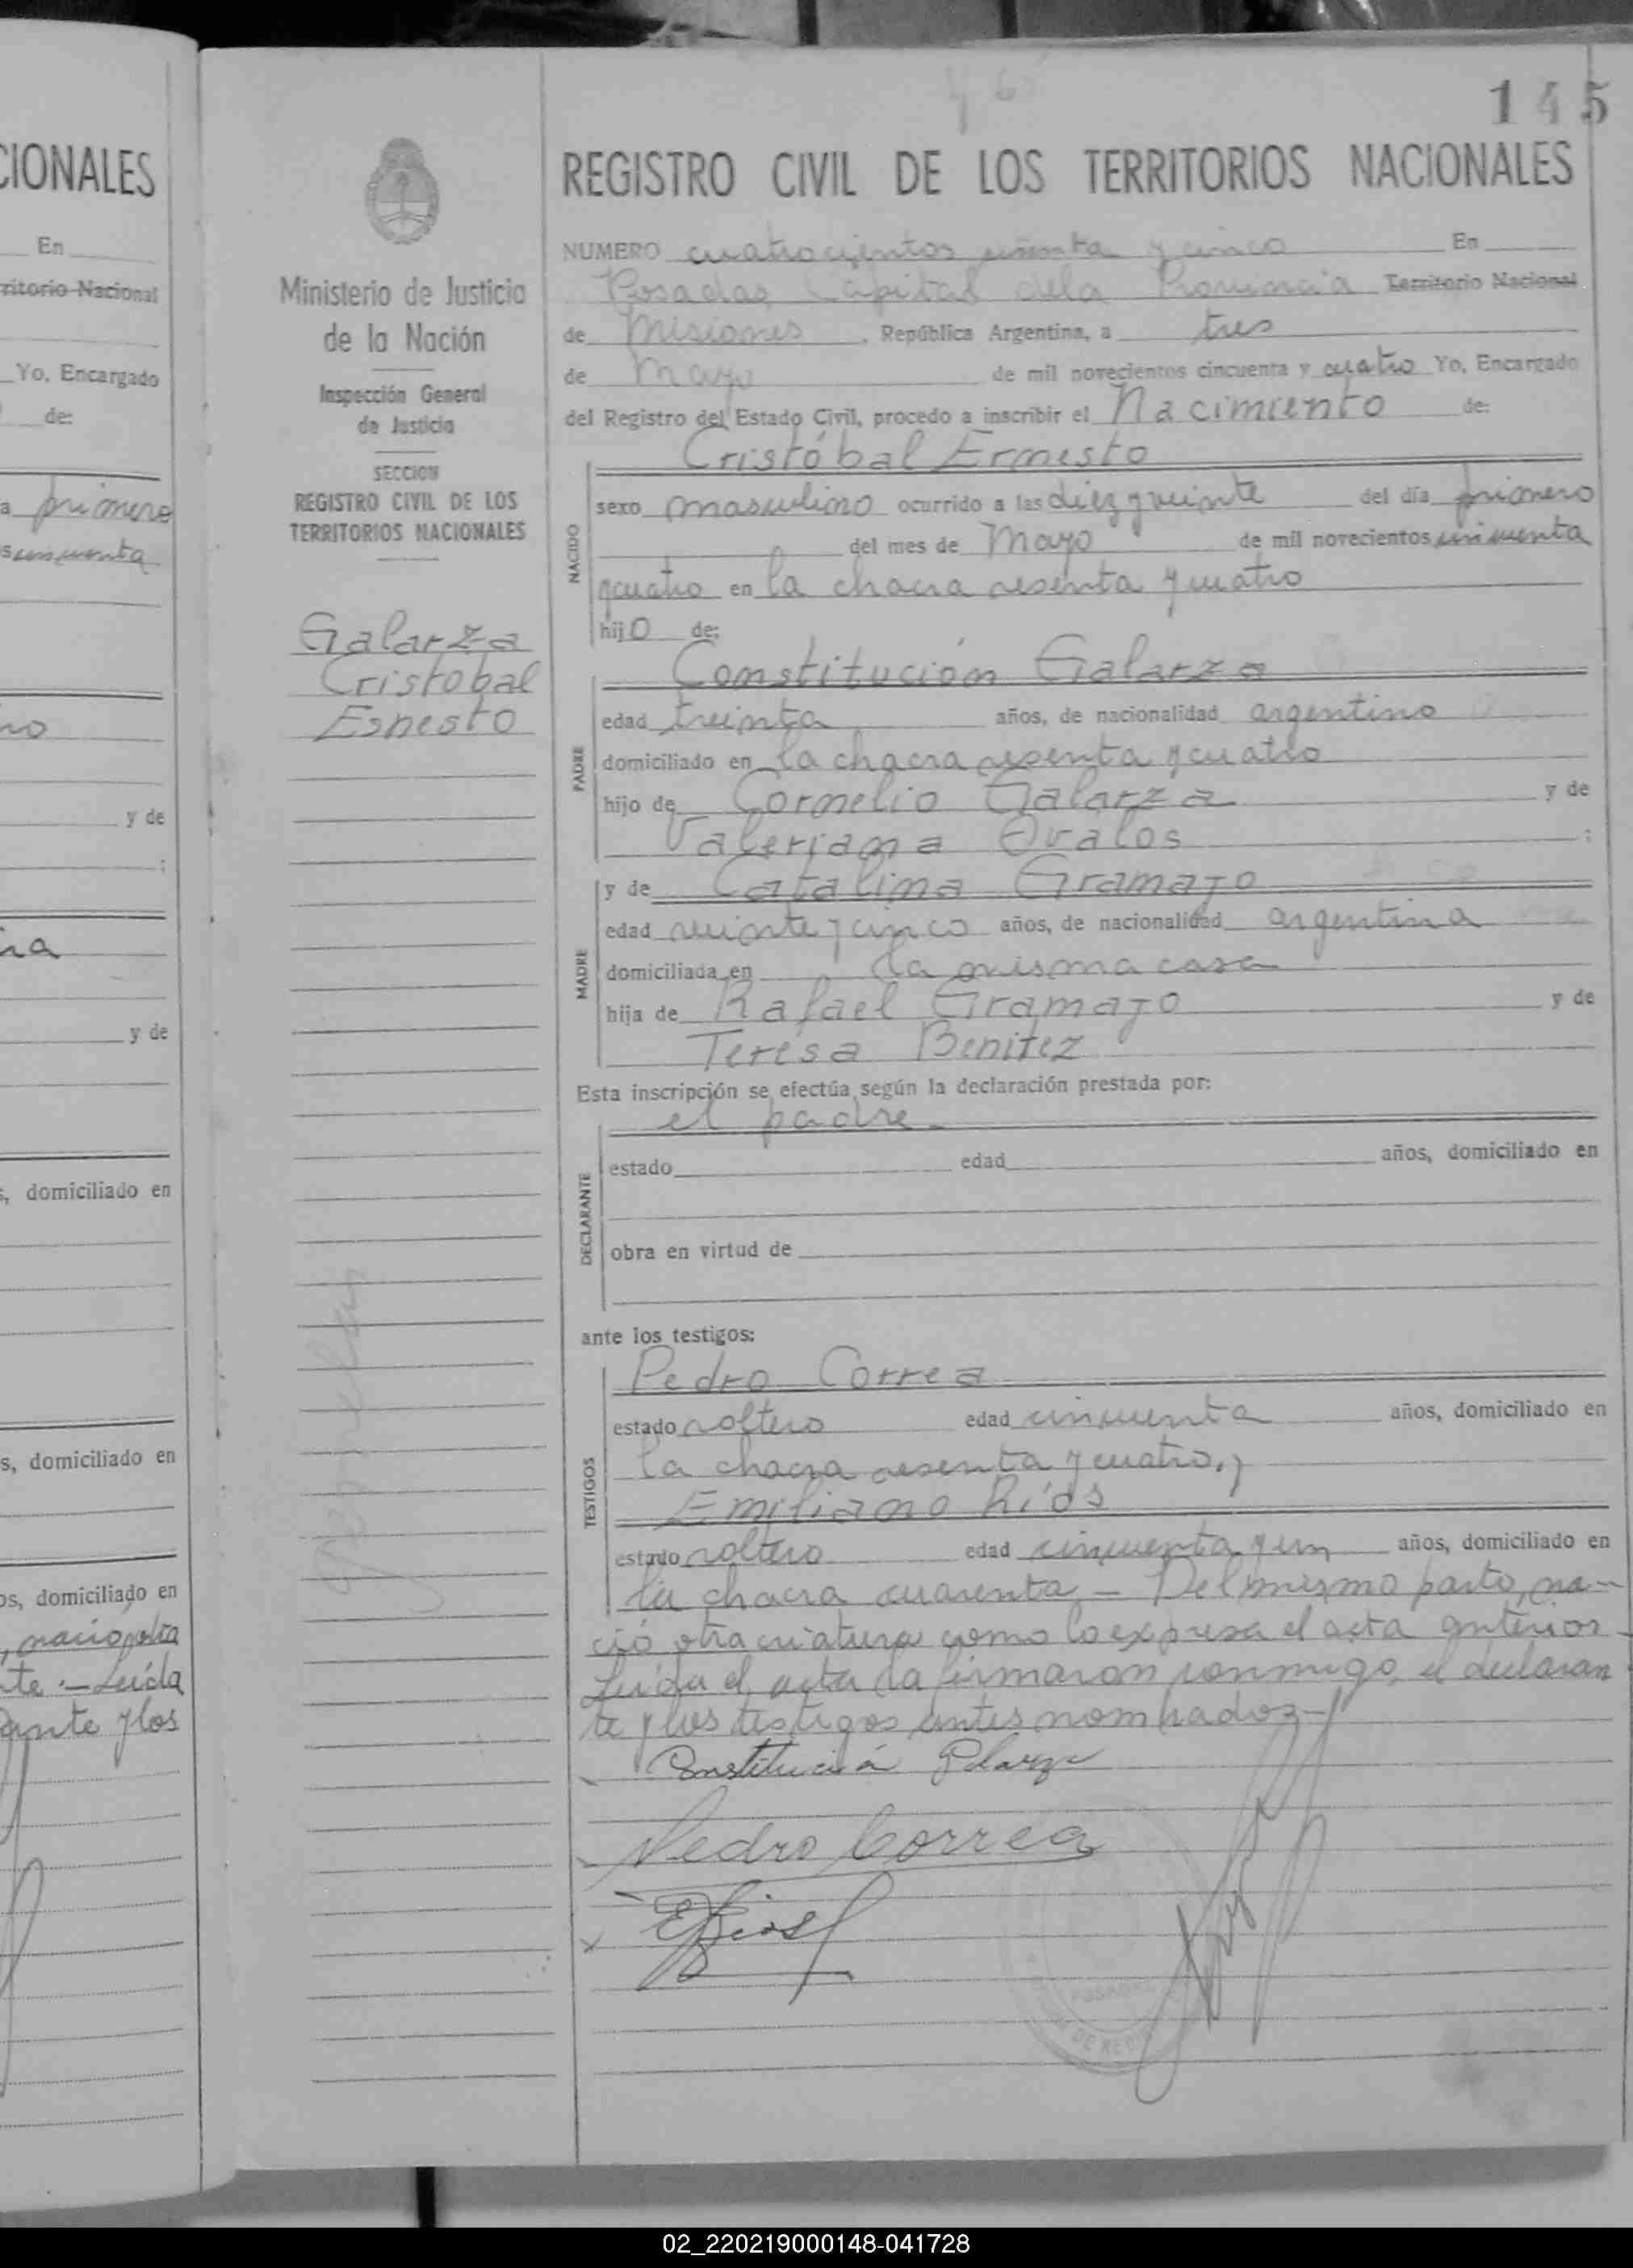 145
CIONALES
En
ritorio Nacional
Yo, Encargado
de:
a primero
s cincuenta
no
y de
;
na
y de
s, domiciliado en
s, domiciliado en
os, domiciliado en
, nació otra
te.- Leída
ante y los
Ministerio de Justicia
de la Nación
Inspección General
de Justicia
SECCION
REGISTRO CIVIL DE LOS
TERRITORIOS NACIONALES
Galarza
Cristobal
Ernesto
REGISTRO CIVIL DE LOS TERRITORIOS NACIONALES
NUMERO cuatrocientos y cinco En
Posadas, Capital de la Provincia Territorio Nacional
de Misiones, República Argentina, a tres
de Mayo de mil novecientos cincuenta y cuatro Yo, Encargado
del Registro del Estado Civil, procedo a inscribir el Nacimiento de:
Cristóbal Ernesto
NACIDO
sexo masculino ocurrido a las diez y veinte del día primero
del mes de Mayo de mil novecientos cincuenta
y cuatro en la chacra sesenta y cuatro
hijo de:
Constitución Galarza
PADRE
edad treinta años, de nacionalidad argentino
domiciliado en la chacra sesenta y cuatro
hijo de Cornelio Galarza y de
Valeriana Ovalos :
MADRE
y de Catalina Gramajo
edad veinte y cinco años, de nacionalidad argentina
domiciliada en la misma casa
hija de Rafael Gramajo y de
Teresa Benitez
Esta inscripción se efectúa según la declaración prestada por:
el padre.
DECLARANTE
estado edad años, domiciliado en
obra en virtud de
ante los testigos:
TESTIGOS
Pedro Correa
estado soltero edad cincuenta años, domiciliado en
la chacra sesenta y cuatro, y
Emiliano Ríos
estado soltero edad cincuenta y un años, domiciliado en
la chacra cuarenta - Del mismo parto, na-
ció otra criatura como lo expresa el acta anterior -
Leída el acta la firmaron conmigo, el declaran
te y los testigos antes nombrados -
Constitución Galarza
Pedro Correa
E Rios
POSADAS
DE REGI
02_220219000148-041728